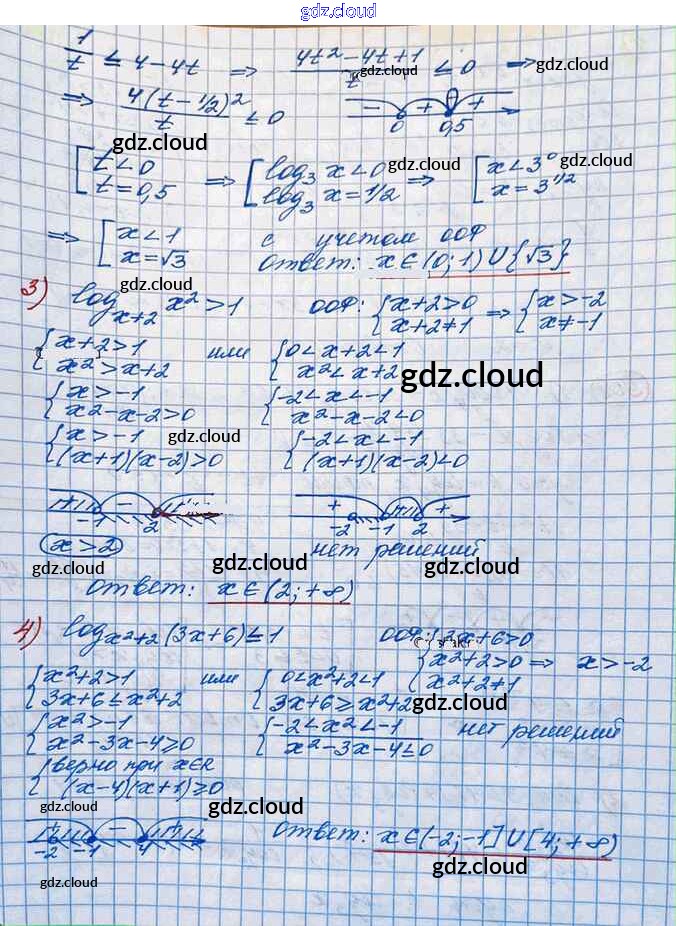 gdz.cloud
1/t ≤ 4-4t ⇒ (4t²-4t+1)/t ≤ 0 ⇒ gdz.cloud
gdz.cloud
⇒ 4(t-1/2)²/t ≤ 0 - + + 0 0,5
gdz.cloud
[t<0 t=0,5 ⇒ [log₃ x<0 log₃ x=1/2 ⇒ [x<3⁰ x=3^1/2
gdz.cloud gdz.cloud
gdz.cloud
⇒ [x<1 x=√3 с учетом ООФ
Ответ: x∈(0;1)∪{√3}
gdz.cloud
3) log_{x+2} x²>1 ООФ: {x+2>0 x+2≠1 ⇒ {x>-2 x≠-1
gdz.cloud
{x+2>1 x²>x+2 или {0<x+2<1 x²<x+2
gdz.cloud
{x>-1 x²-x-2>0 {-2<x<-1 x²-x-2<0
{x>-1 (x+1)(x-2)>0 {-2<x<-1 (x+1)(x-2)<0
gdz.cloud
+ - + -1 2 + - + -2 -1 2
x>2 нет решений
gdz.cloud gdz.cloud gdz.cloud
Ответ: x∈(2;+∞)
4) log_{x²+2}(3x+6)≤1 ООФ: {3x+6>0 x²+2>0 x²+2≠1 ⇒ x>-2
{x²+2>1 3x+6≤x²+2 или {0<x²+2<1 3x+6≥x²+2
gdz.cloud
{x²>-1 x²-3x-4≥0 {-2<x²<-1 x²-3x-4≤0 нет решений
{верно при x∈R (x-4)(x+1)≥0
gdz.cloud gdz.cloud
+ - + -2 -1 4 Ответ: x∈(-2;-1]∪[4;+∞)
gdz.cloud gdz.cloud